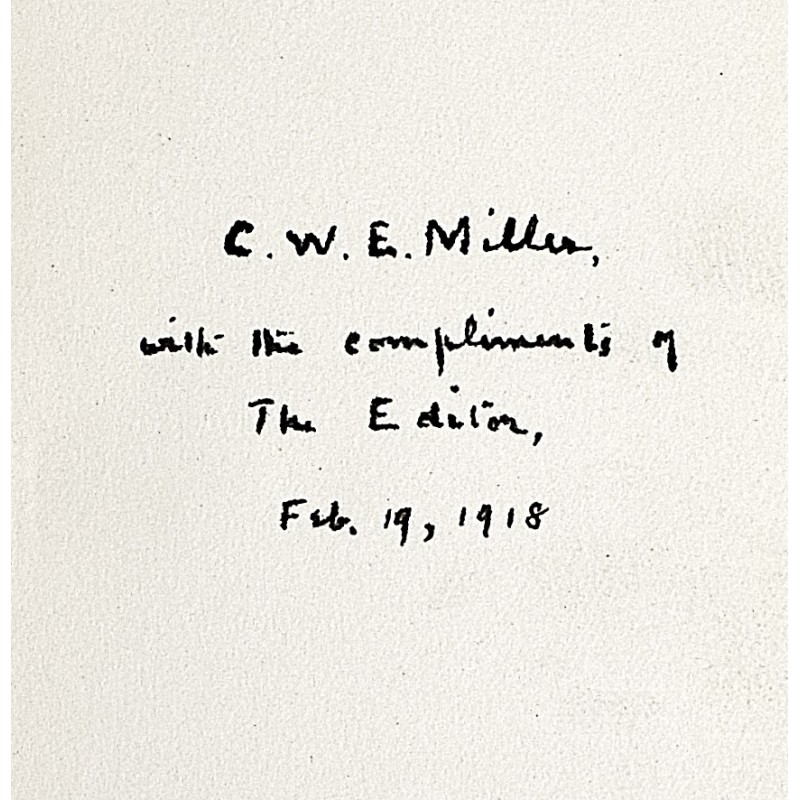 C. W. E. Miller,
with the compliments of
The Editor,
Feb. 19, 1918